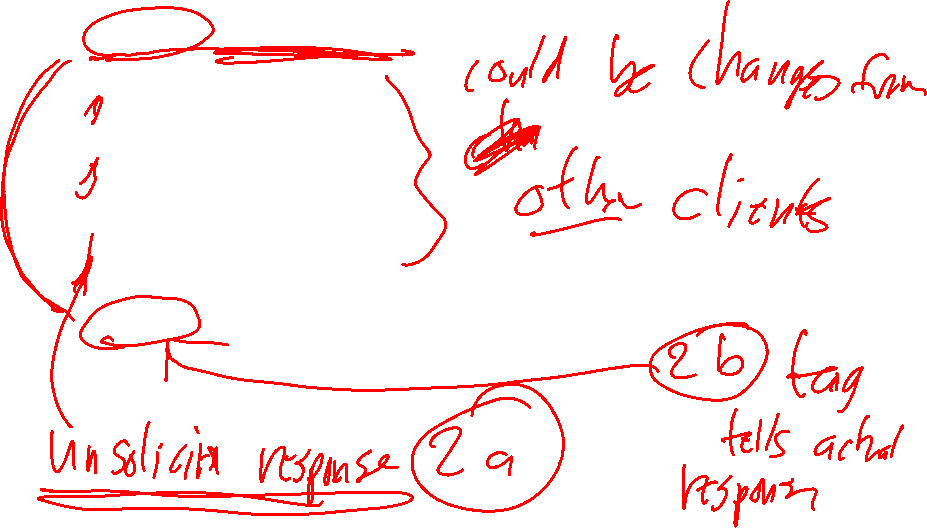 could be changes from
other clients
2b tag
tells actual
response
unsolicit response 2a